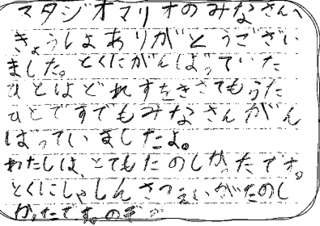 スタジオマリオのみなさんへ
きょうしょありがとうござい
ました。とくにがんばっていた
ひとはどれすをきさてもうた
ひとですでもみなさんがん
ばっていましたよ。
わたしは、とてもたのしかったです。
とくにしゃしんさつえいがたのし
かったです。